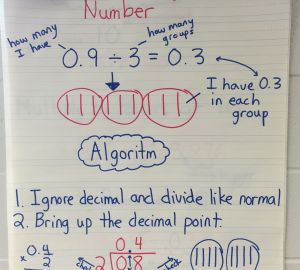 Number
how many I have
how many groups
0.9 ÷ 3 = 0.3
I have 0.3
in each
group
Algoritm
1. Ignore decimal and divide like normal
2. Bring up the decimal point.
0.4
0.4
x 2
2 0.8
check
check